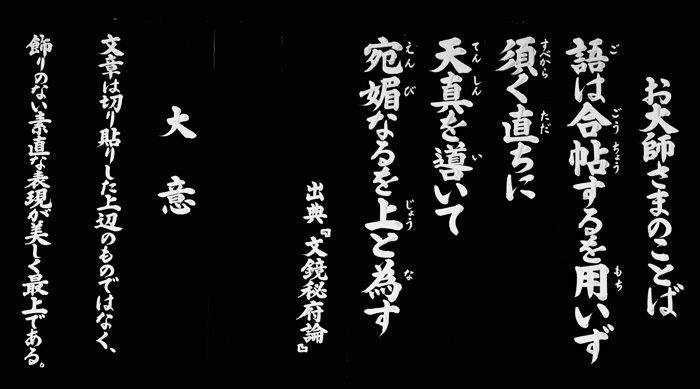 お大師さまのことば
語は合帖するを用いず
須く直ちに
天真を導いて
宛媚なるを上と為す
出典『文鏡秘府論』
大意
文章は切り貼りした上辺のものではなく、
飾りのない素直な表現が美しく最上である。